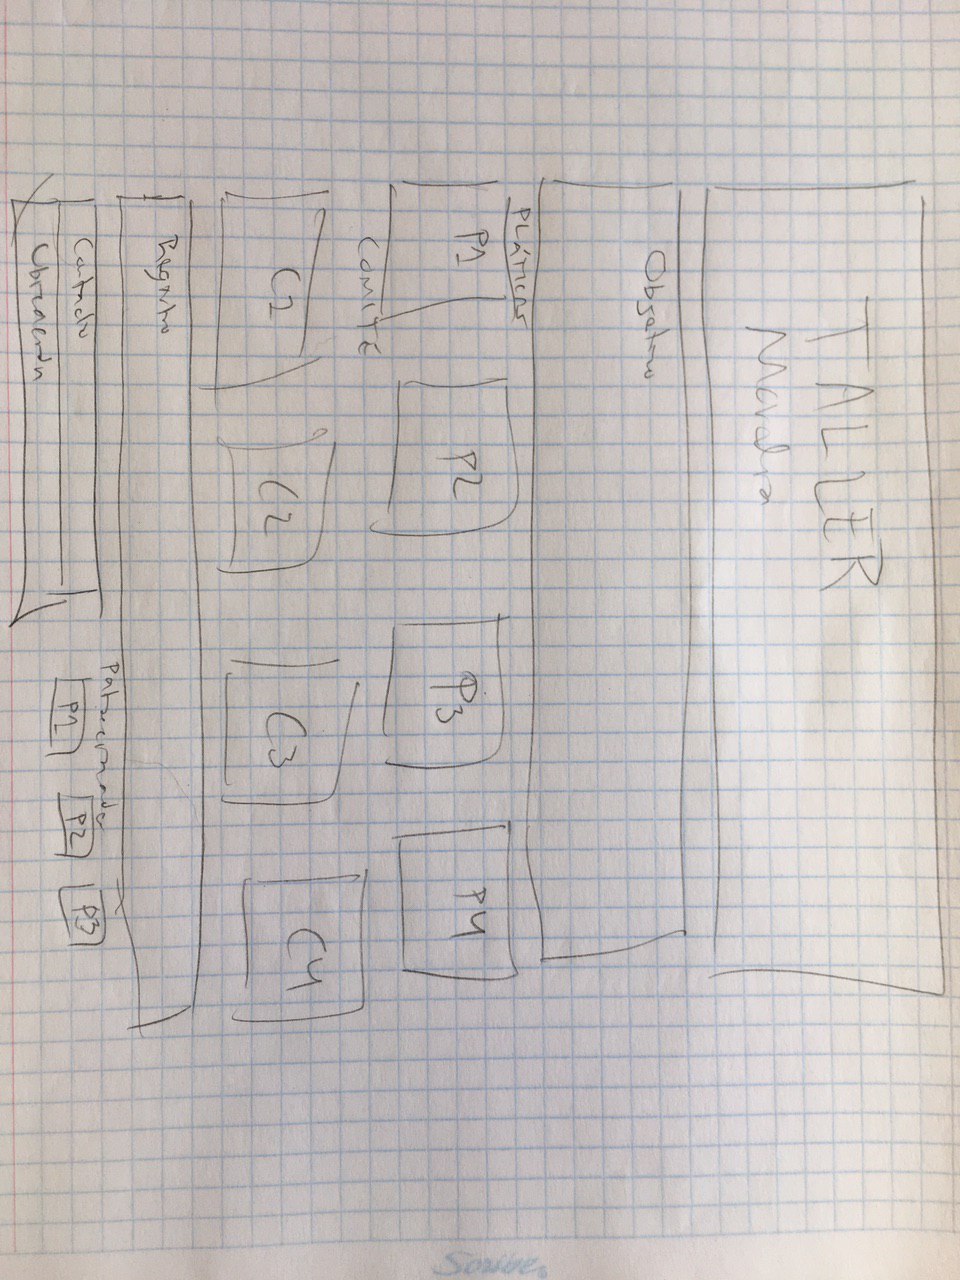 TALLER
Objetivo
PLÁTICAS
P1 P2 P3 P4
COMITÉ
C1 C2 C3 C4
Registro
Contacto
Ubicación
Patrocinador
P1 P2 P3
Scribe